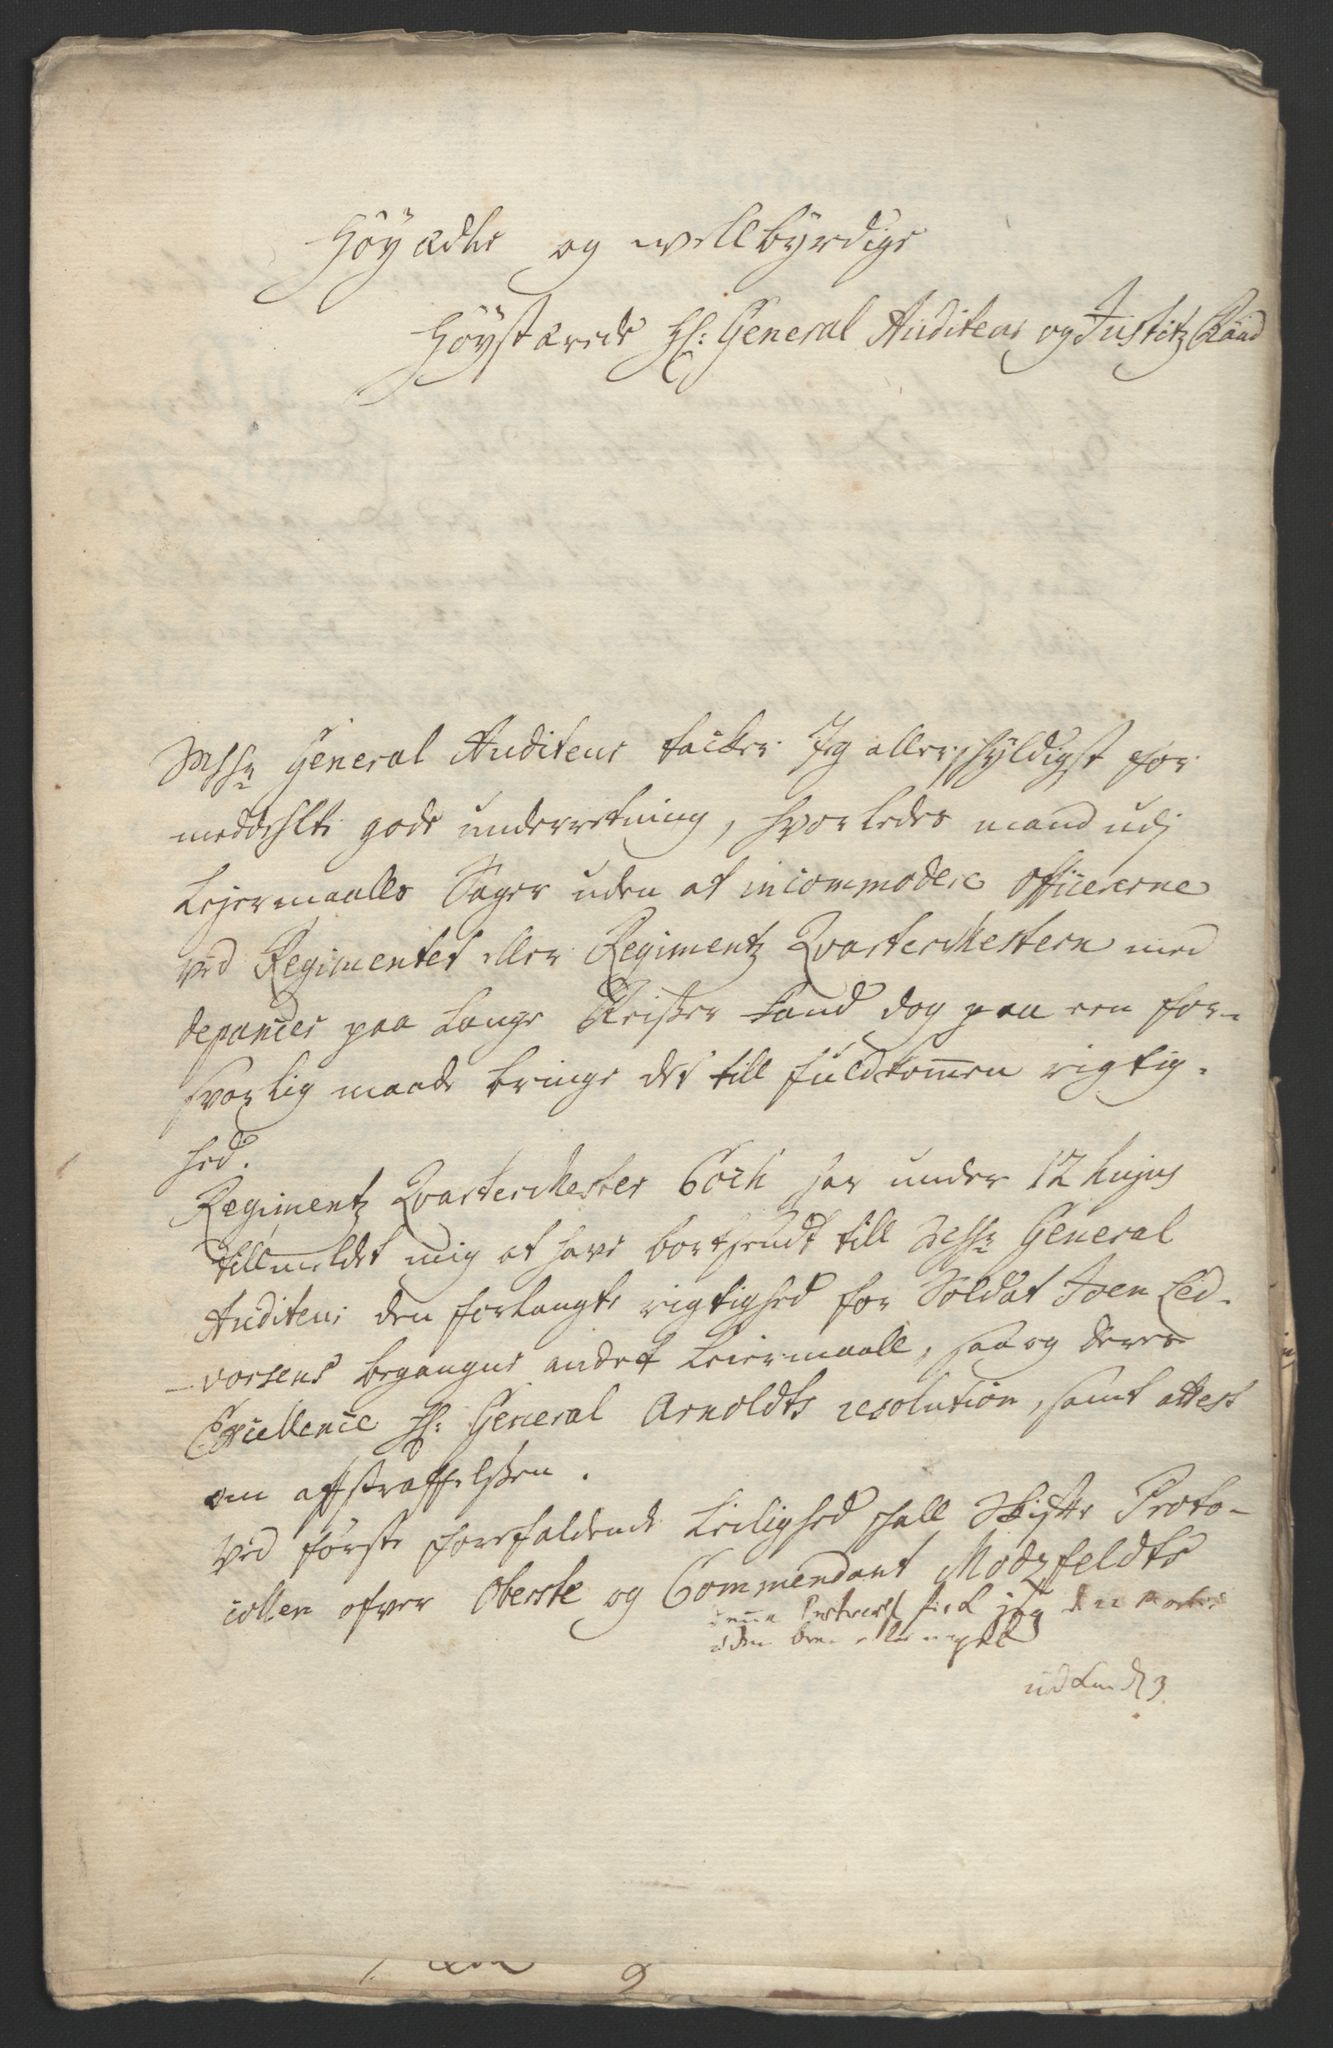 Høyædle og wellbyrdige
Høystærede Hr: General Auditeur og Justitz Raad
Msr General Auditeur tacker Jeg allerskyldigst for
meddeelte gode underretning, hvorledes mand udj
Lejermaalls Sager uden at incommodere Officererne
ved Regimentet eller Regimentz Qvarteermestern med
depancer paa lange Reisser kand dog paa een for-
svarlig maade bringe det till fuldkommen rigtig-
hed.
Regimentz Qvarteermester Coch har under 12 hujus
tillmeldet mig at have bortsendt till Msr General
Auditeur den forlangte rigtighed for Soldat Joen Led-
vorsens begangne andet Leiermaall, saa og deres
Excellence Hr: General Arnoldts resolution, samt attest
om afstraffelssen.
Ved første forefaldende Leilighed skall Skifte Proto-
collen ofver Oberste og Commendant Motzfeldts
denne fick jeg den
uden